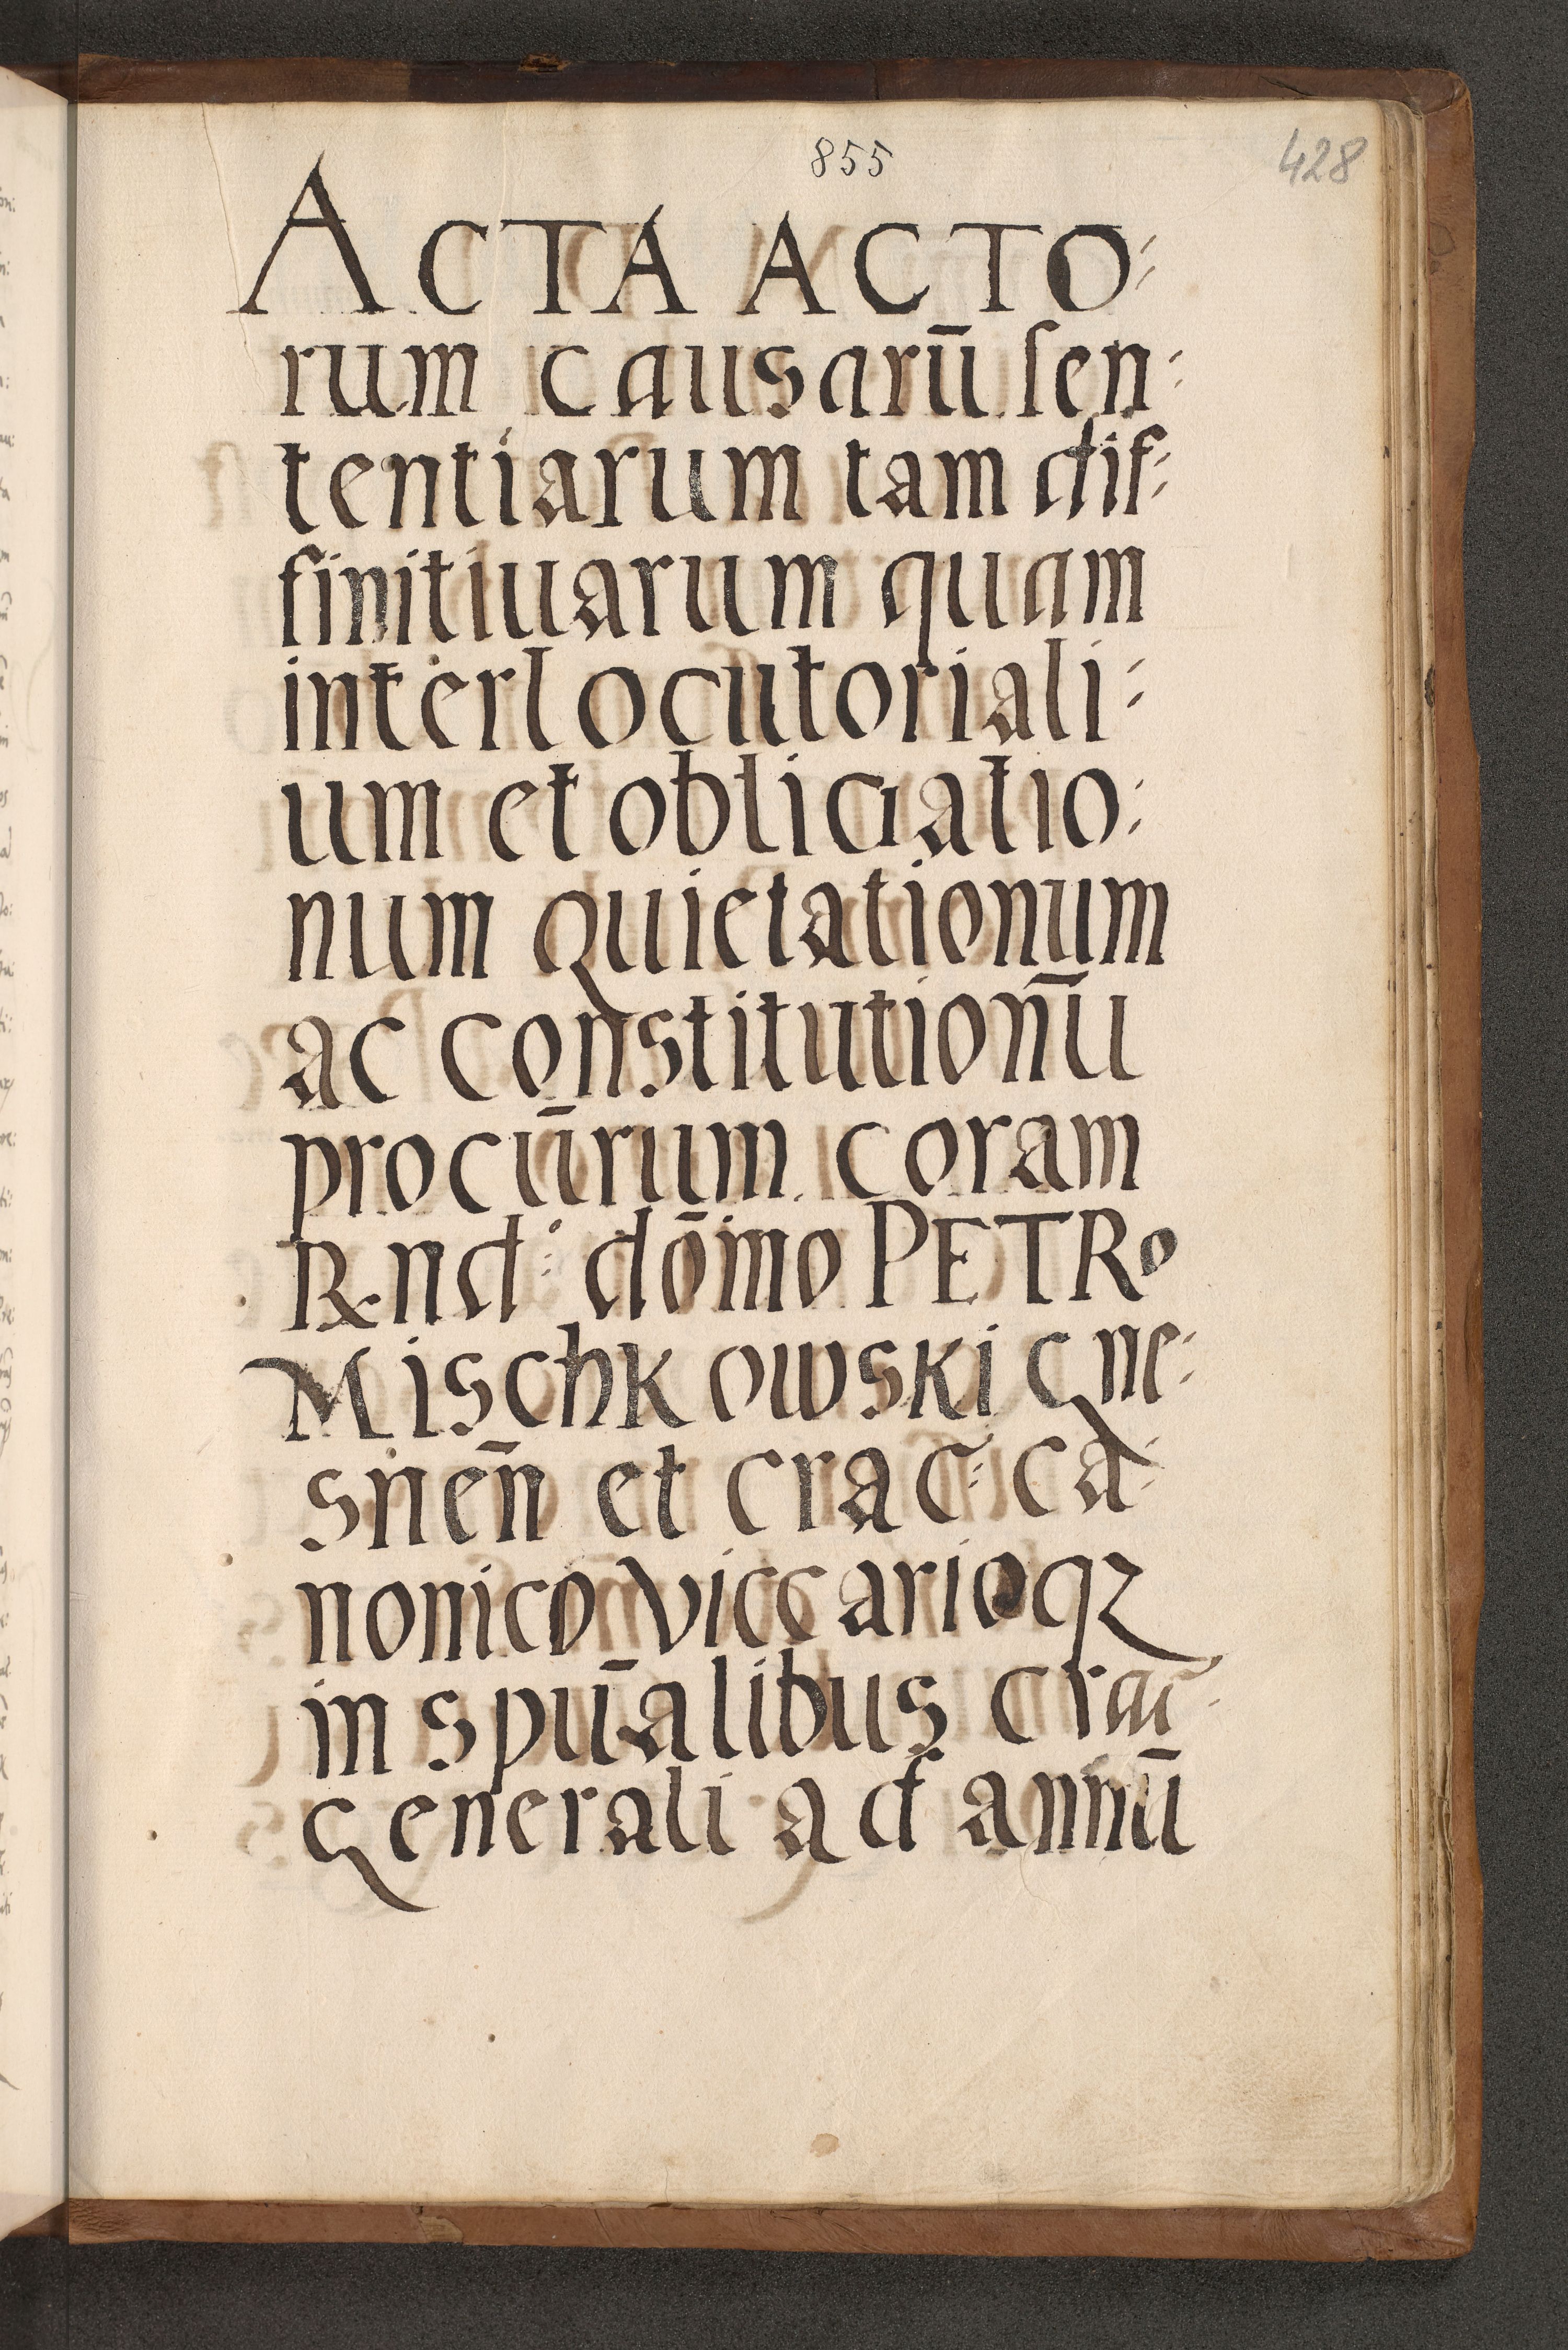 855
428
ACTA ACTO:
rum causarū sen:
tentiarum tam dif:
finitiuarum quam
interlocutoriali:
um et obligatio:
num quietationum
ac constitutionū
procūrum coram
Rnd: dōmo PETRo
Mischkowski gne:
snēn et crac: ca:
nonico viccarioqz
in spūalibus crac:
generali ad annū